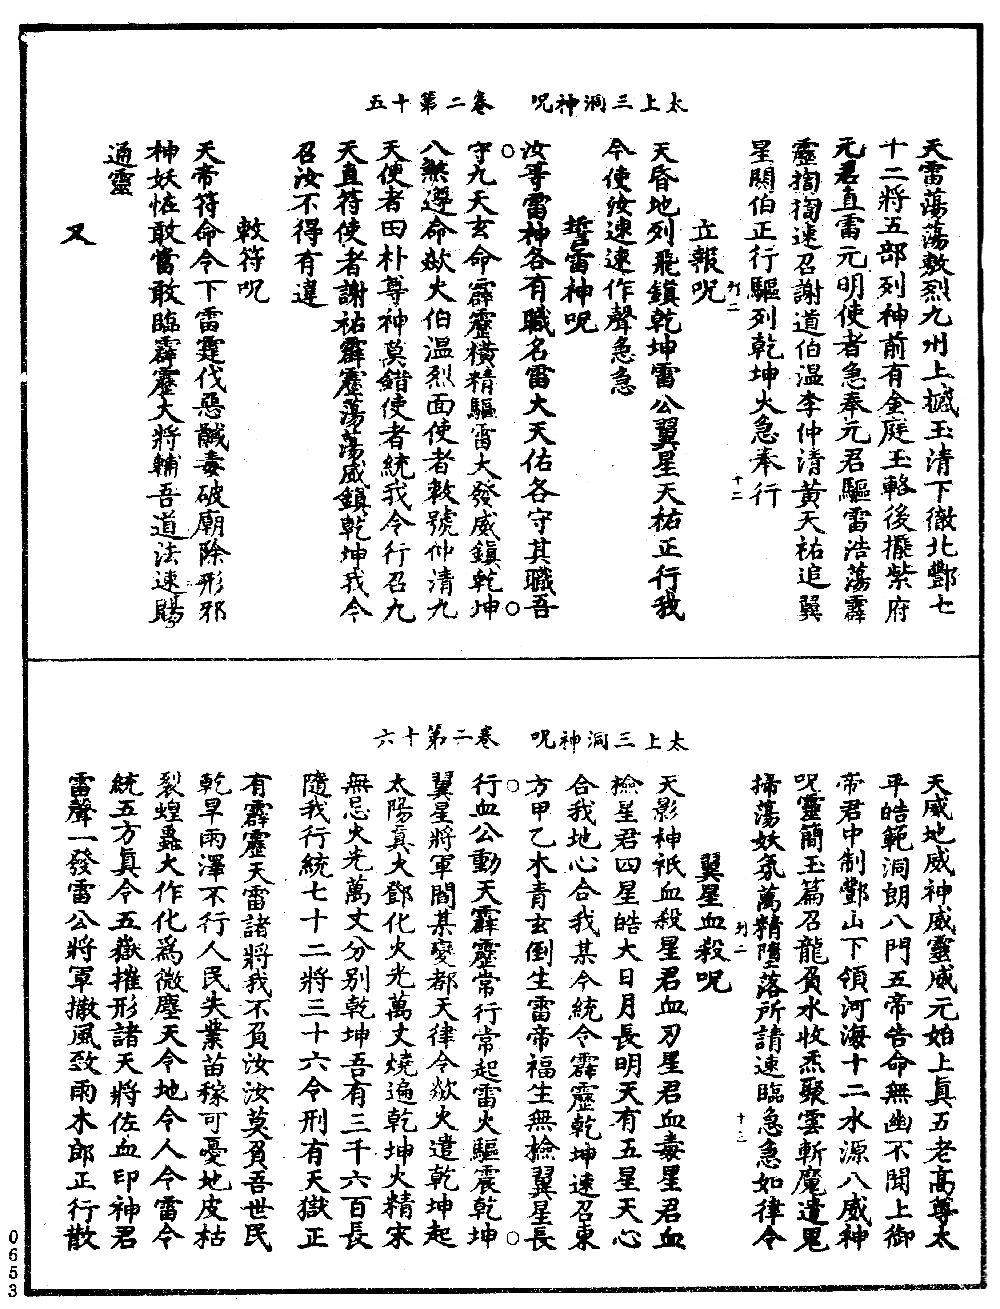 太上三洞神呪　卷二第十五
天雷蕩蕩敷烈九州上搣玉清下徹北酆七
十二將五部列神前有金庭玉輅後擺紫府
元君直雷元明使者急奉元君驅雷浩蕩霹
靂掏掏速召謝道伯温李仲清黃天祐追翼
星闕伯正行驅列乾坤火急奉行
列二　十二
立報呪
天昏地列飛鎮乾坤雷公翼星天祐正行我
今使汝速速作聲急急
誓雷神呪
汝等雷神各有職名雷大天佑各守其職吾
守九天玄命霹靂横精驅雷大發威鎮乾坤
八煞遵命歘火伯温烈面使者敕號仲清九
天使者田朴尊神莫錯使者統我令行召九
天直符使者謝祐霹靂蕩蕩威鎮乾坤我今
召汝不得有違
敕符呪
天帝符命令下雷霆伐惡馘毒破廟除形邪
神妖恠敢當敢臨霹靂大將輔吾道法速賜
通靈
又
太上三洞神呪　卷二第十六
天威地威神威靈威元始上真五老高尊太
平皓範洞朗八門五帝告命無幽不聞上御
帝君中制酆山下領河海十二水源八威神
呪靈簡玉篇召龍負水收炁聚雲斬魔遣鬼
掃蕩妖氛萬精隳落所請速臨急急如律令
列二　十三
翼星血殺呪
天影神祇血殺星君血刃星君血毒星君血
檢星君四星皓大日月長明天有五星天心
合我地心合我某今統令霹靂乾坤速召東
方甲乙木青玄倒生雷帝福生無檢翼星長
行血公動天霹靂常行常起雷火驅震乾坤
翼星將軍閻某變都天律令歘火遣乾坤起
太陽真火鄧化火光萬丈燒遍乾坤火精宋
無忌火光萬丈分別乾坤吾有三千六百長
隨我行統七十二將三十六令刑有天獄正
有霹靂天雷諸將我不負汝汝莫負吾世民
乾旱雨澤不行人民失業苗稼可憂地皮枯
裂蝗蟲大作化爲微塵天令地令人令雷令
統五方真令五嶽摧形諸天將佐血印神君
雷聲一發雷公將軍撒風致雨木郎正行散
0653